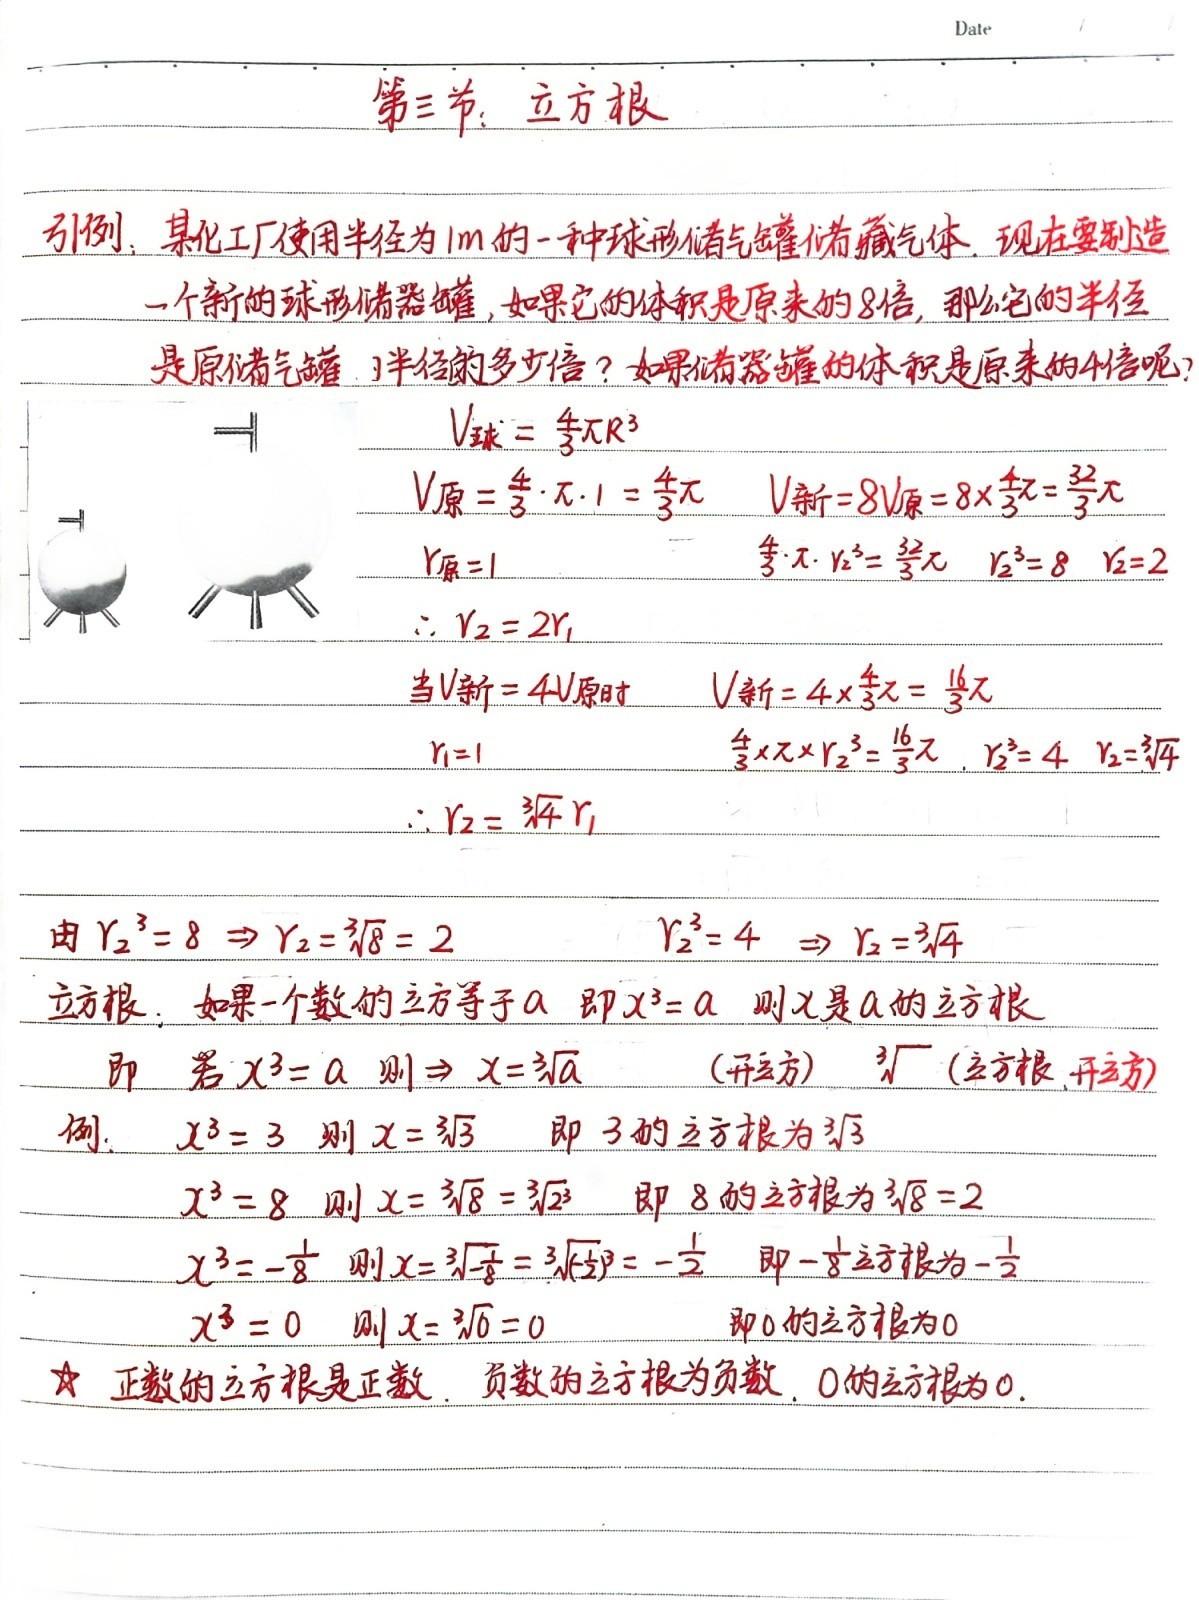 Date / /
第三节：立方根
引例：某化工厂使用半径为1m的一种球形储气罐储藏气体．现在要制造
一个新的球形储器罐，如果它的体积是原来的8倍，那么它的半径
是原储气罐 半径的多少倍？如果储器罐的体积是原来的4倍呢？
V球 = 4/3πR³
V原 = 4/3·π·1 = 4/3π V新=8V原=8×4/3π=32/3π
r原=1 4/3·π·r₂³=32/3π r₂³=8 r₂=2
∴ r₂=2r₁
当V新=4V原时 V新=4×4/3π=16/3π
r₁=1 4/3×π×r₂³=16/3π . r₂³=4 r₂=³√4
∴ r₂=³√4 r₁
由 r₂³=8 ⇒ r₂=³√8=2 r₂³=4 ⇒ r₂=³√4
立方根．如果一个数的立方等于a 即x³=a 则x是a的立方根
即 若x³=a 则⇒ x=³√a (开立方) ³√ (立方根、开立方)
例： x³=3 则 x=³√3 即 3的立方根为³√3
x³=8 则 x=³√8=³√2³ 即 8的立方根为³√8=2
x³=-1/8 则x=³√-1/8=³√(-1/2)³=-1/2 即-1/8立方根为-1/2
x³=0 则x=³√0=0 即0的立方根为0
☆ 正数的立方根是正数．负数的立方根为负数．0的立方根为0．